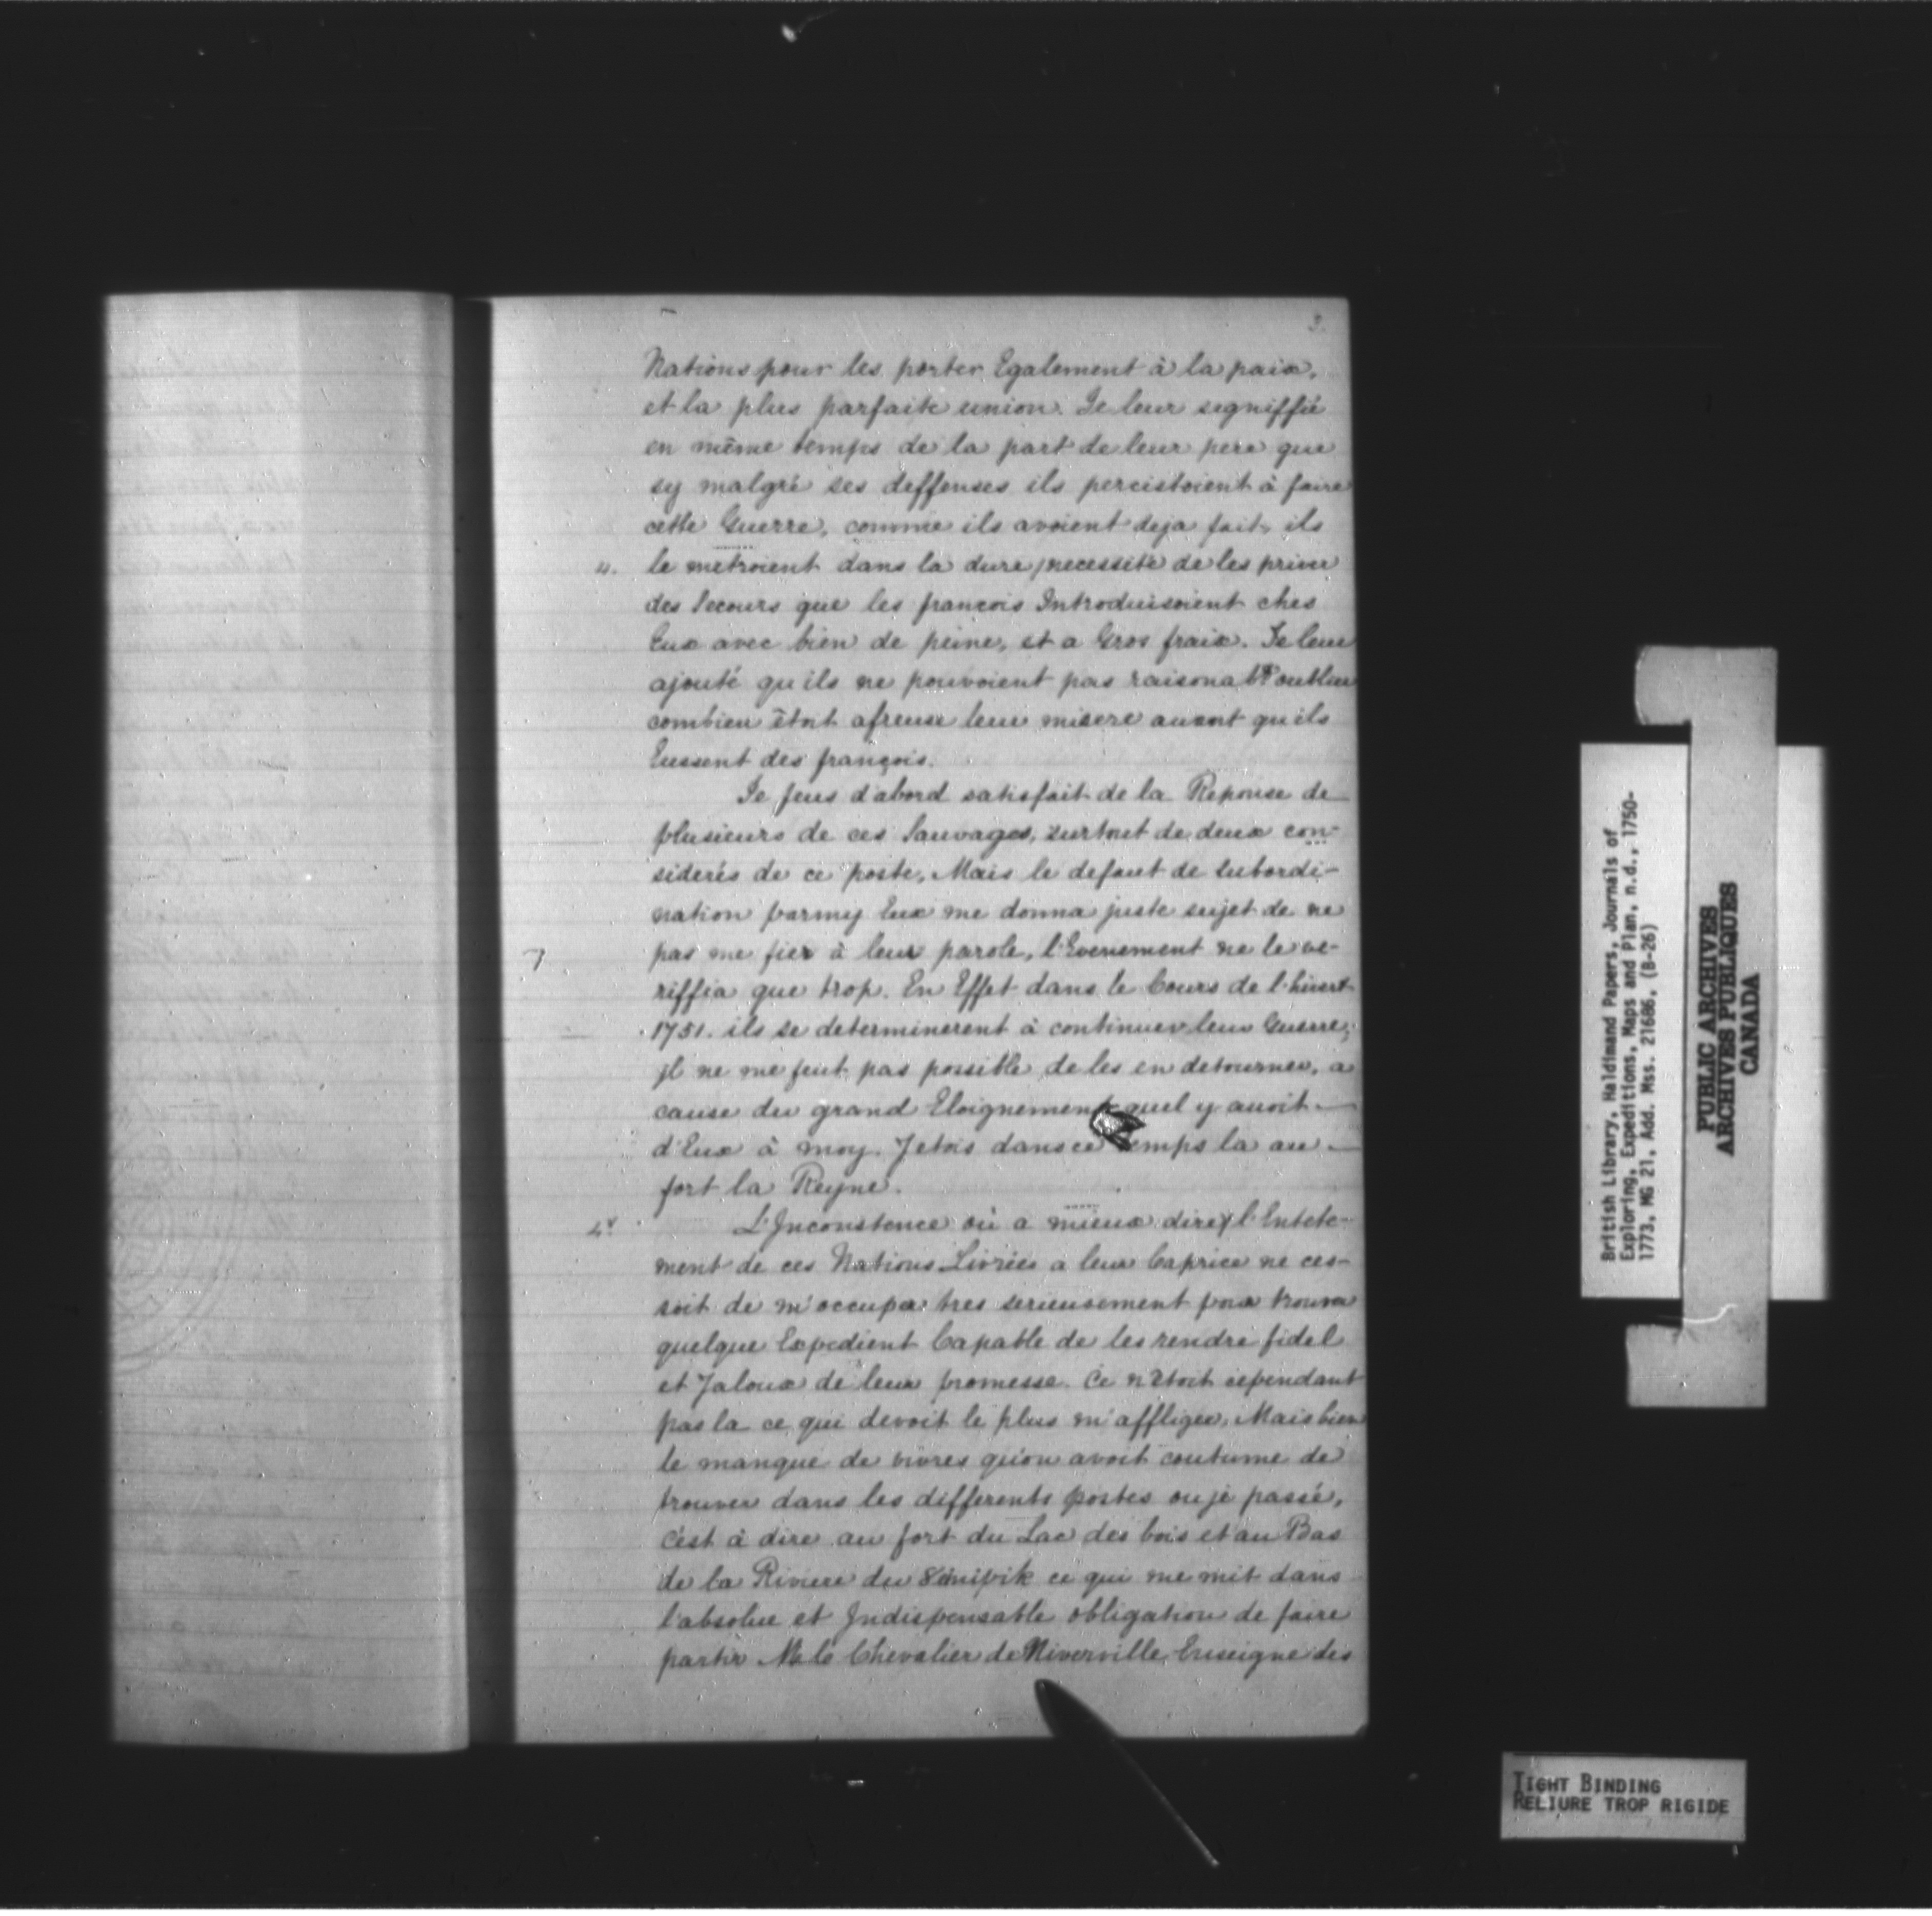 3.
Nations pour les porter Egalement à la paix,
et la plus parfaite union. Je leur signiffié
en même temps de la part de leur pere que
sy malgré ses deffenses ils percistoient à faire
cette Guerre, comme ils avoient deja fait, ils
4. le metroient dans la dure necessité de les priver
des Secours que les francois Introduisoient ches
Eux avec bien de peine, et a Gros fraix. Je leur
ajouté qu'ils ne pouvoient pas raisonablt oublier
combien étoit afreuse leur misere avant qu'ils
Eussent des françois.
Je feus d'abord satisfait de la Reponse de
plusieurs de ces Sauvages, surtout de deux con-
siderés de ce poste, Mais le defaut de subordi-
nation parmy Eux me donna juste sujet de ne
pas me fier à leur parole, l'Evenement ne le ve-
riffia que trop. En Effet dans le Cours de l'hivert
1751. ils se determinerent à continuer leur Guerre;
jl ne me feut pas possible de les en detourner, a
cause du grand Eloignement quel y avoit
d'Eux à moy. J'etois dans ce temps la au
fort la Reyne.
L'Inconstence où a mieux dire l'Entete-
ment de ces Nations Livrées a leur Caprice ne ces-
soit de m'occuper tres serieusement pour trouver
quelque Expedient Capable de les rendre fidel
et Jaloux de leur promesse. Ce n'étoit cependant
pas la ce qui devoit le plus m'affliger, Mais bien
le manque de vivres qu'on avoit coutume de
trouver dans les differents postes ou je passé,
c'est à dire au fort du Lac des bois et au Bas
de la Riviere du 8inipik ce qui me mit dans
l'absolue et Jndispensable obligation de faire
partir Mr le Chevalier de Niverville Enseigne des
British Library, Haldimand Papers, Journals of
Exploring, Expeditions, Maps and Plan, n.d., 1750-
1773, MG 21, Add. Mss. 21686, (B-26)
PUBLIC ARCHIVES
ARCHIVES PUBLIQUES
CANADA
TIGHT BINDING
RELIURE TROP RIGIDE